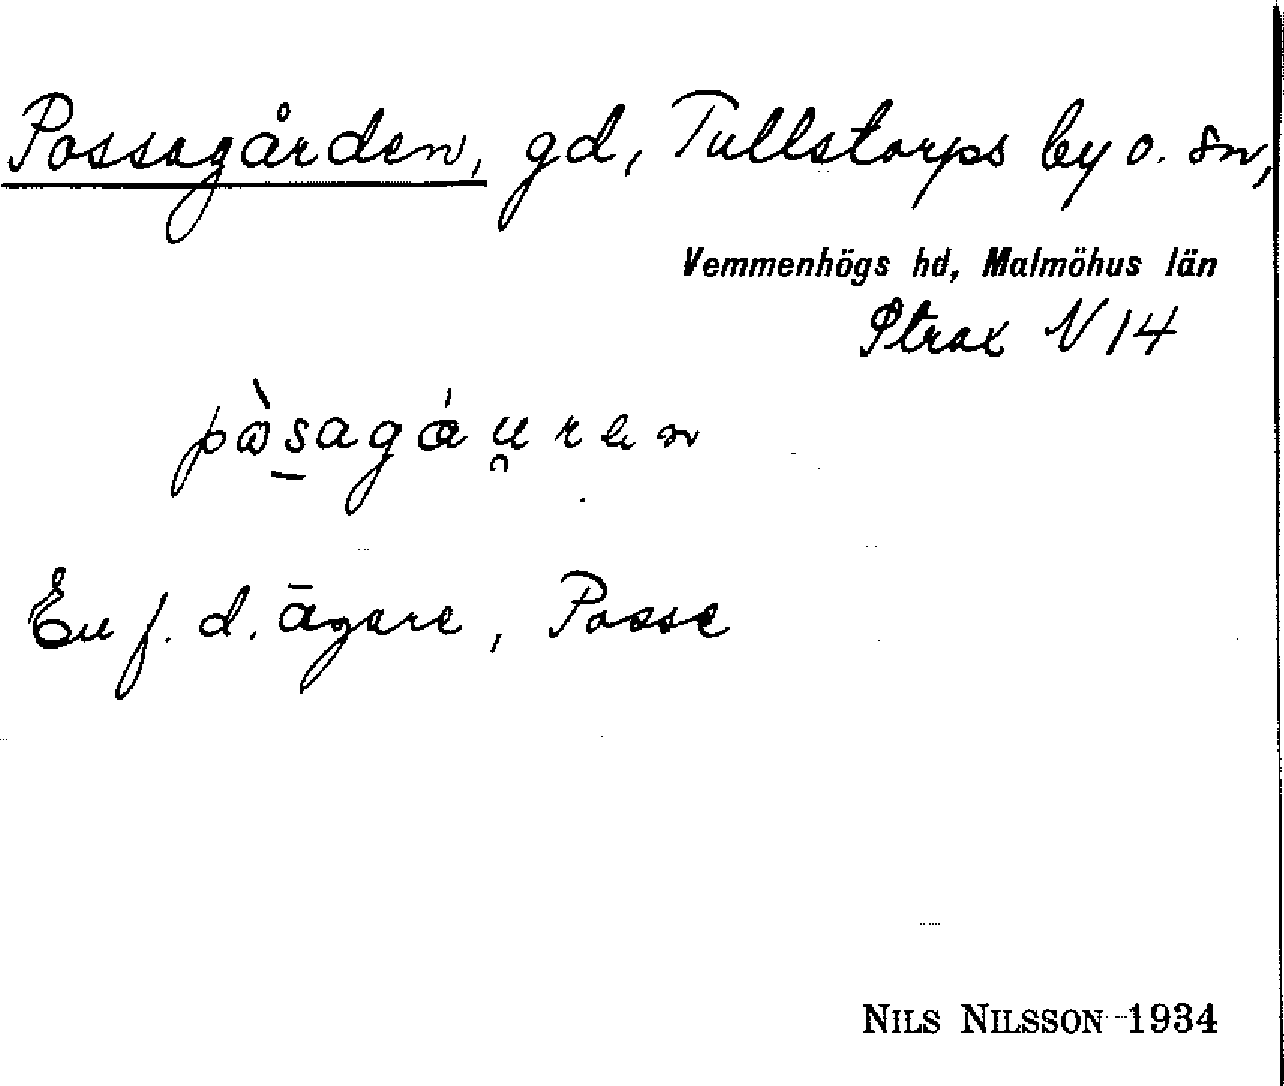 Possagården, gd, Tullstorps by o. sn,
Vemmenhögs hd, Malmöhus län
Strax V 14
pàsagáu̯ren
En f. d. ägare, Posse
NILS NILSSON 1934